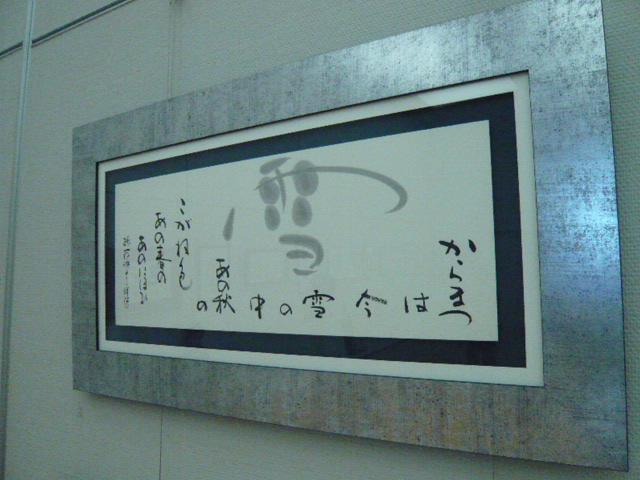 雪
からまつ
は
今
雪
の
中
あの秋
の
こがねも
あの春の
あのにほひ